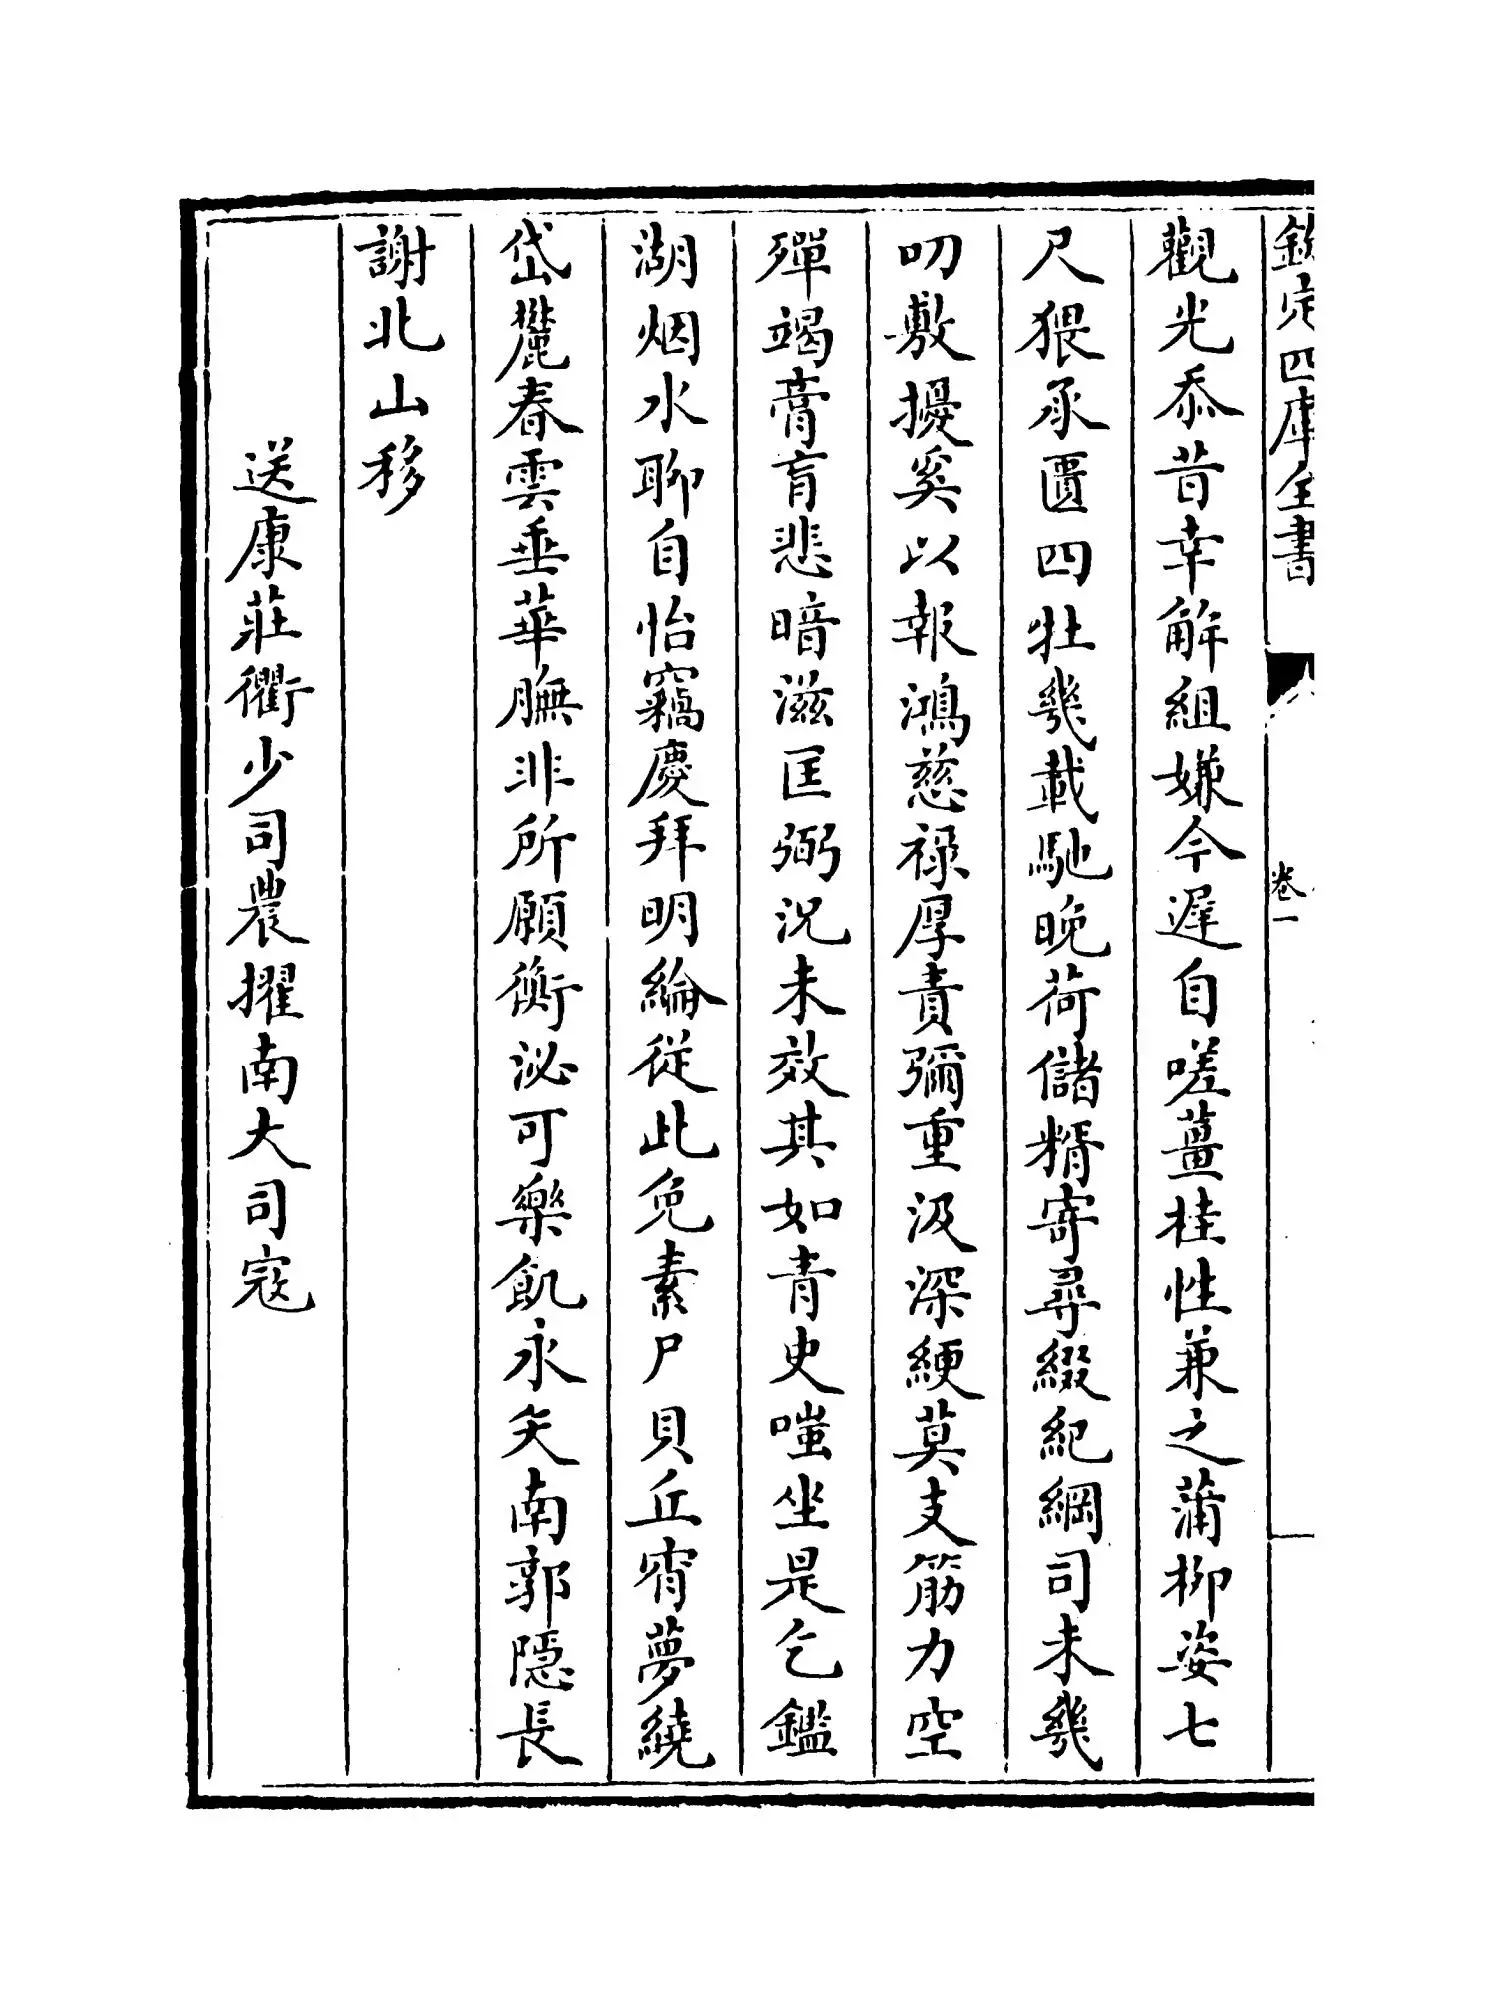 欽定四庫全書
卷一
觀光忝昔幸解組嫌今遲自嗟薑桂性兼之蒲柳姿七
尺猥承匱四牡幾載馳晚荷儲糈寄尋綴紀綱司未幾
叨敷擾奚以報鴻慈祿厚責彌重汲深綆莫支筋力空
殫竭膏肓悲暗滋匡弼況未效其如青史嗤坐是乞鑑
湖烟水聊自怡竊慶拜明綸從此免素尸貝丘宵夢繞
岱麓春雲垂華膴非所願衡泌可樂飢永矢南郭隱長
謝北山移
送康莊衢少司農擢南大司寇